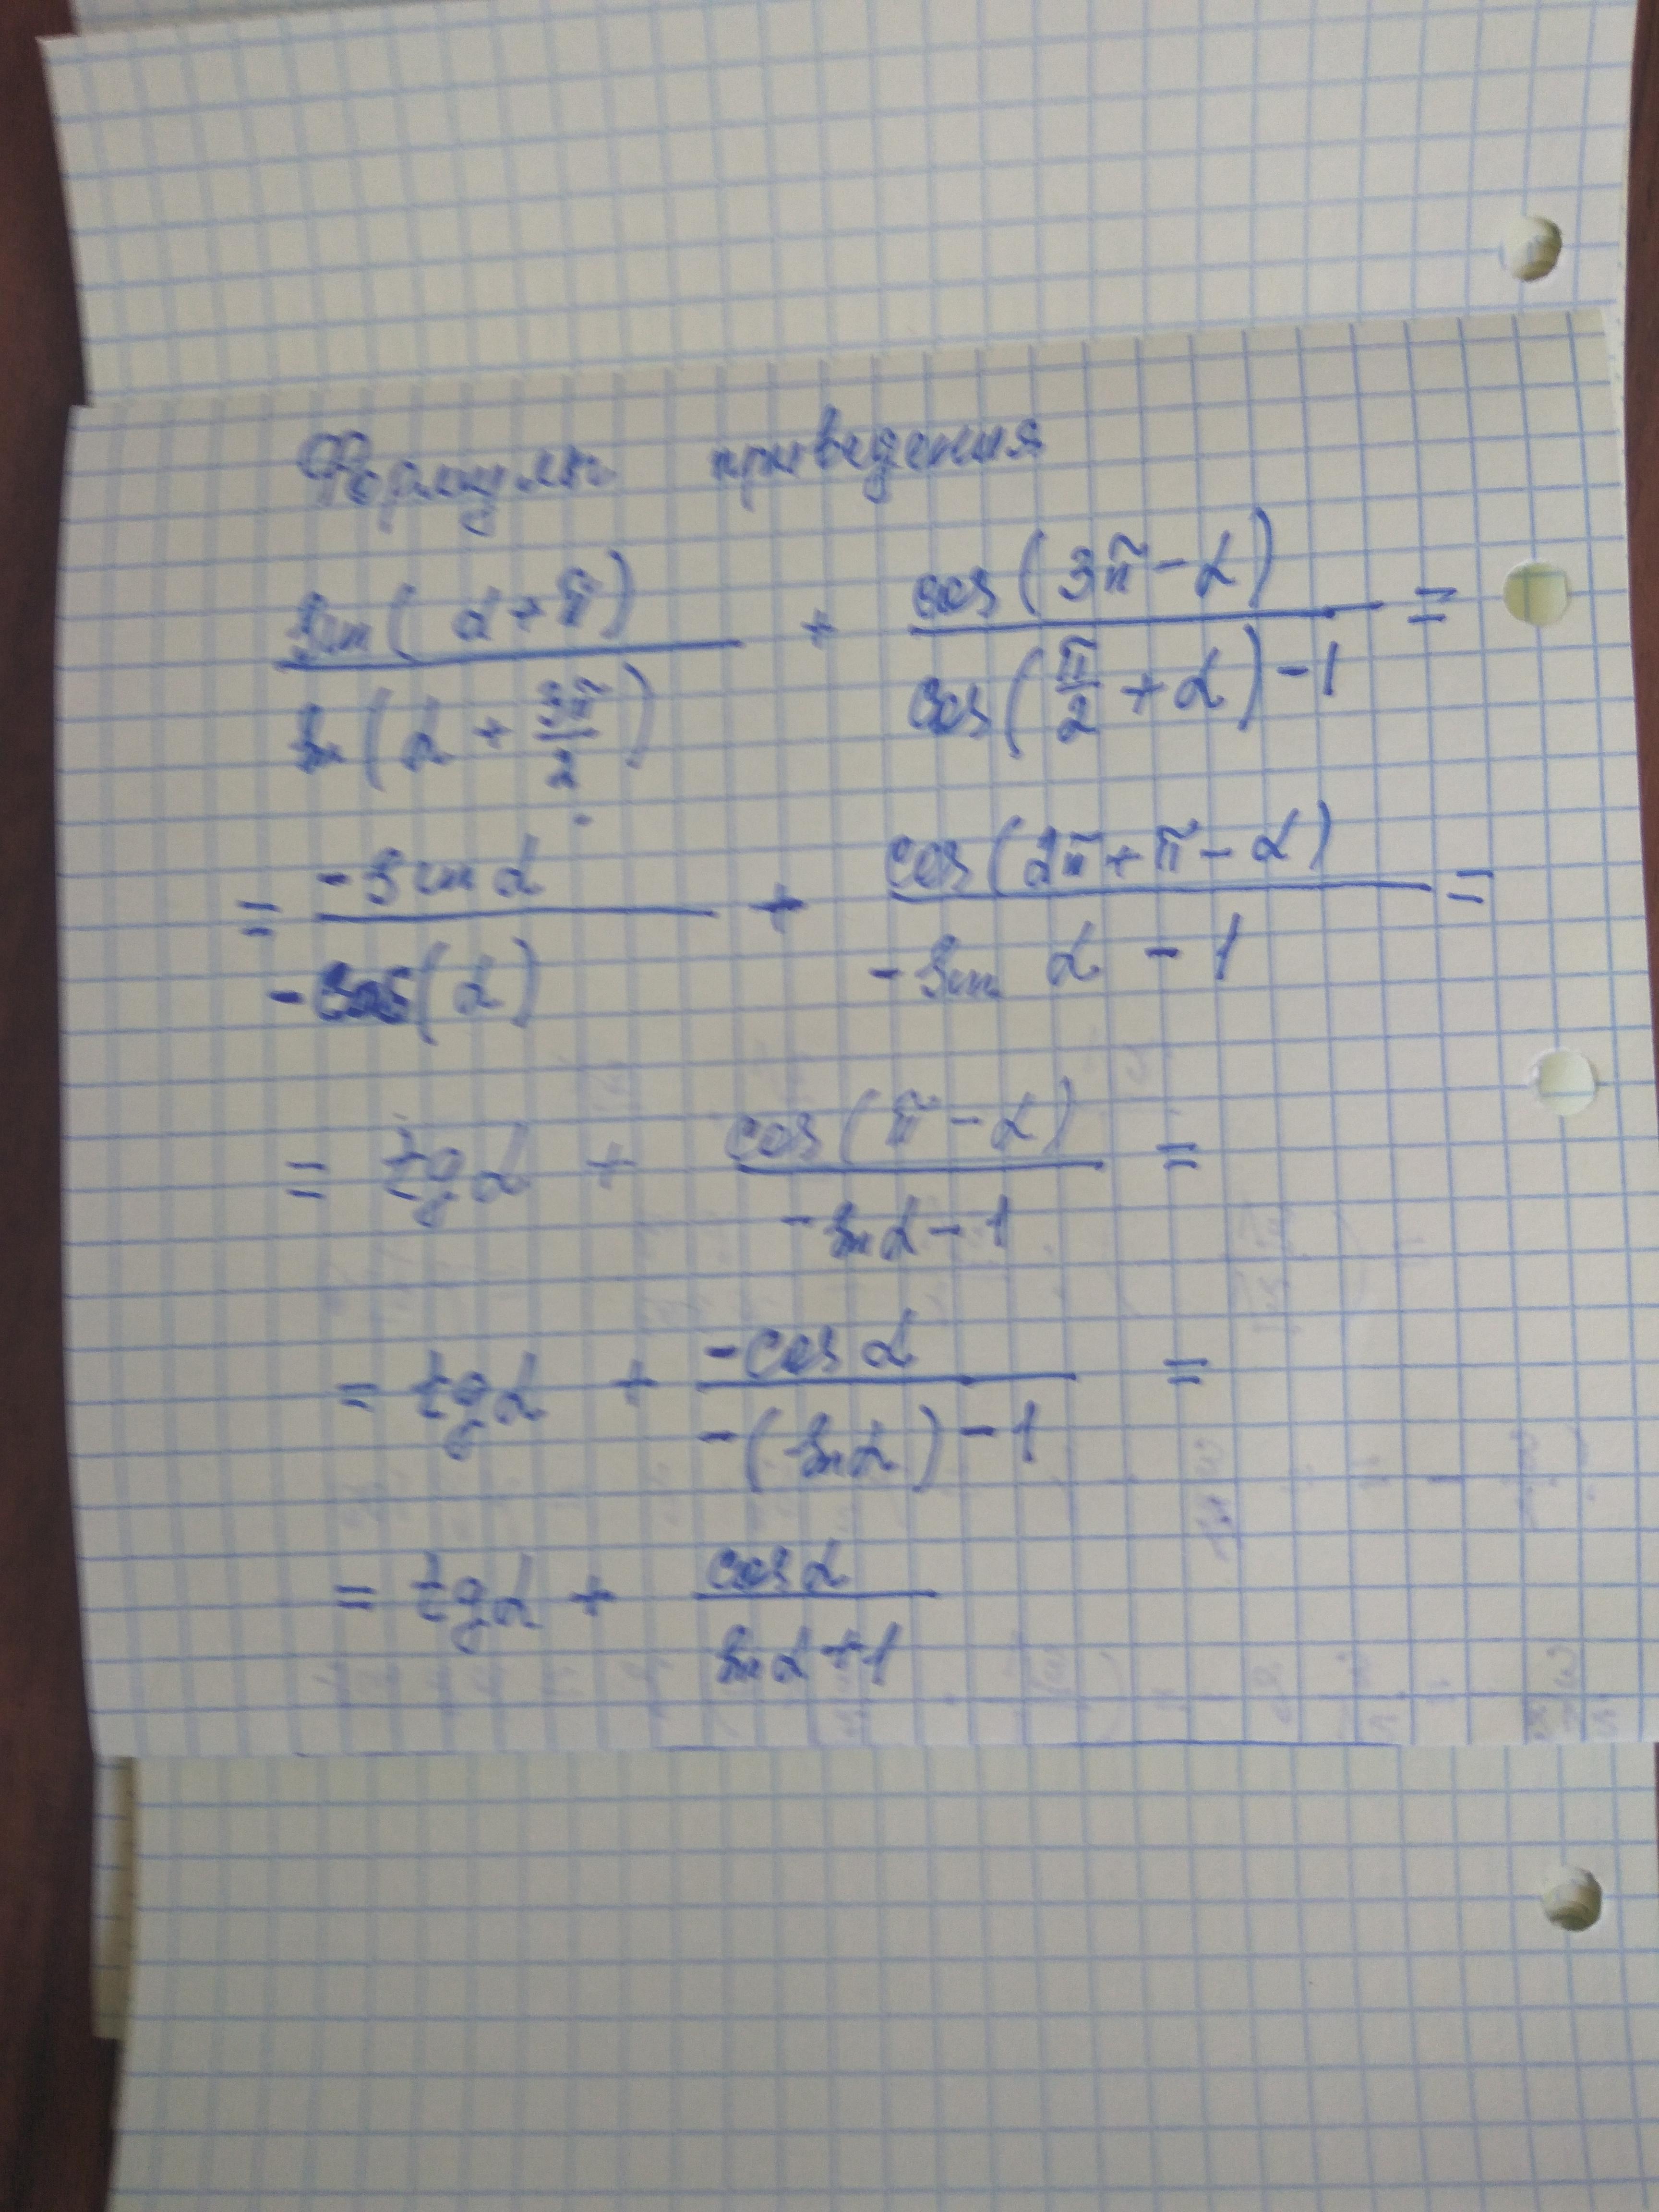 Формулы приведения
sin(α+π) / sin(α + 3π/2) + cos(3π-α) / cos(π/2 + α) - 1 =
= -sin α / -cos(α) + cos(2π+π-α) / -sin α - 1 =
= tg α + cos(π-α) / -sin α - 1 =
= tg α + -cos α / -(sin α) - 1 =
= tg α + cos α / sin α + 1